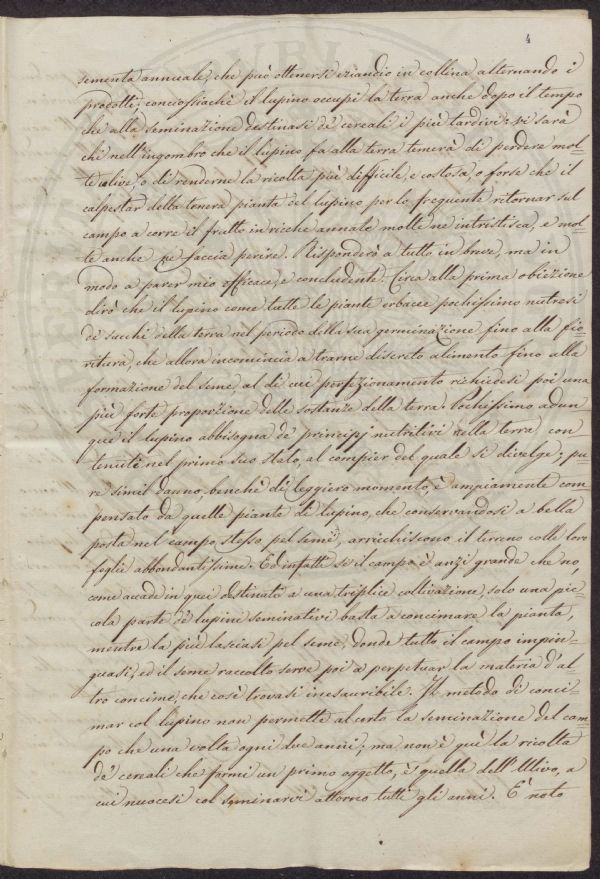 4
sementa annuale, che può ottenersi eziandio in collina alternando i
prodotti, conciossiachè il lupino occupi la terra anche dopo il tempo
che alla seminazione destinasi de' cereali i più tardivi: vi sarà
chi nell'ingombro che il lupino fa alla terra temerà di perdere mol=
te ulive, o di renderne la ricolta più difficile, e costosa, o forse che il
calpestar della tenera pianta del lupino per lo frequente ritornar sul
campo a corre il frutto in ricche annate molte ne intristisca, e mol=
te anche ne faccia perire. Risponderò a tutto in breve, ma in
modo a parer mio efficace, e concludente. Circa alla prima obiezione
dirò che il lupino come tutte le piante erbacee pochissimo nutresi
de' succhi della terra nel periodo della sua germinazione fino alla fio=
ritura, che allora incomincia a trarne discreto alimento fino alla
formazione del seme, al di cui perfezionamento richiedesi poi una
più forte proporzione delle sostanze della terra. Pochissimo adun=
que il lupino abbisogna de' principj nutritivi nella terra con=
tenuti nel primo suo stato, al compier del quale si divelge; pu=
re simil danno, benchè di leggiero momento, è ampiamente com=
pensato da quelle piante di lupino, che conservandosi a bella
posta nel campo stesso pel seme, arricchiscono il terreno colle loro
foglie abbondantissime. Ed infatti se il campo è anzi grande che no,
come accade in quei destinati a una triplice coltivazione, solo una pic=
cola parte de' lupini seminativi basta a concimare la pianta,
mentre la più lasciasi pel seme, donde tutto il campo impin=
guasi, ed il seme raccolto serve poi a perpetuar la materia d'al=
tro concime, che così trovasi inesauribile. Il metodo di conci=
mar col lupino non permette al certo la seminazione del cam=
po che una volta ogni due anni; ma non è quì la ricolta
de' cereali che formi un primo oggetto, è quella dell'Ulivo, a
cui nuocesi col seminarvi attorno tutti gli anni. E' noto